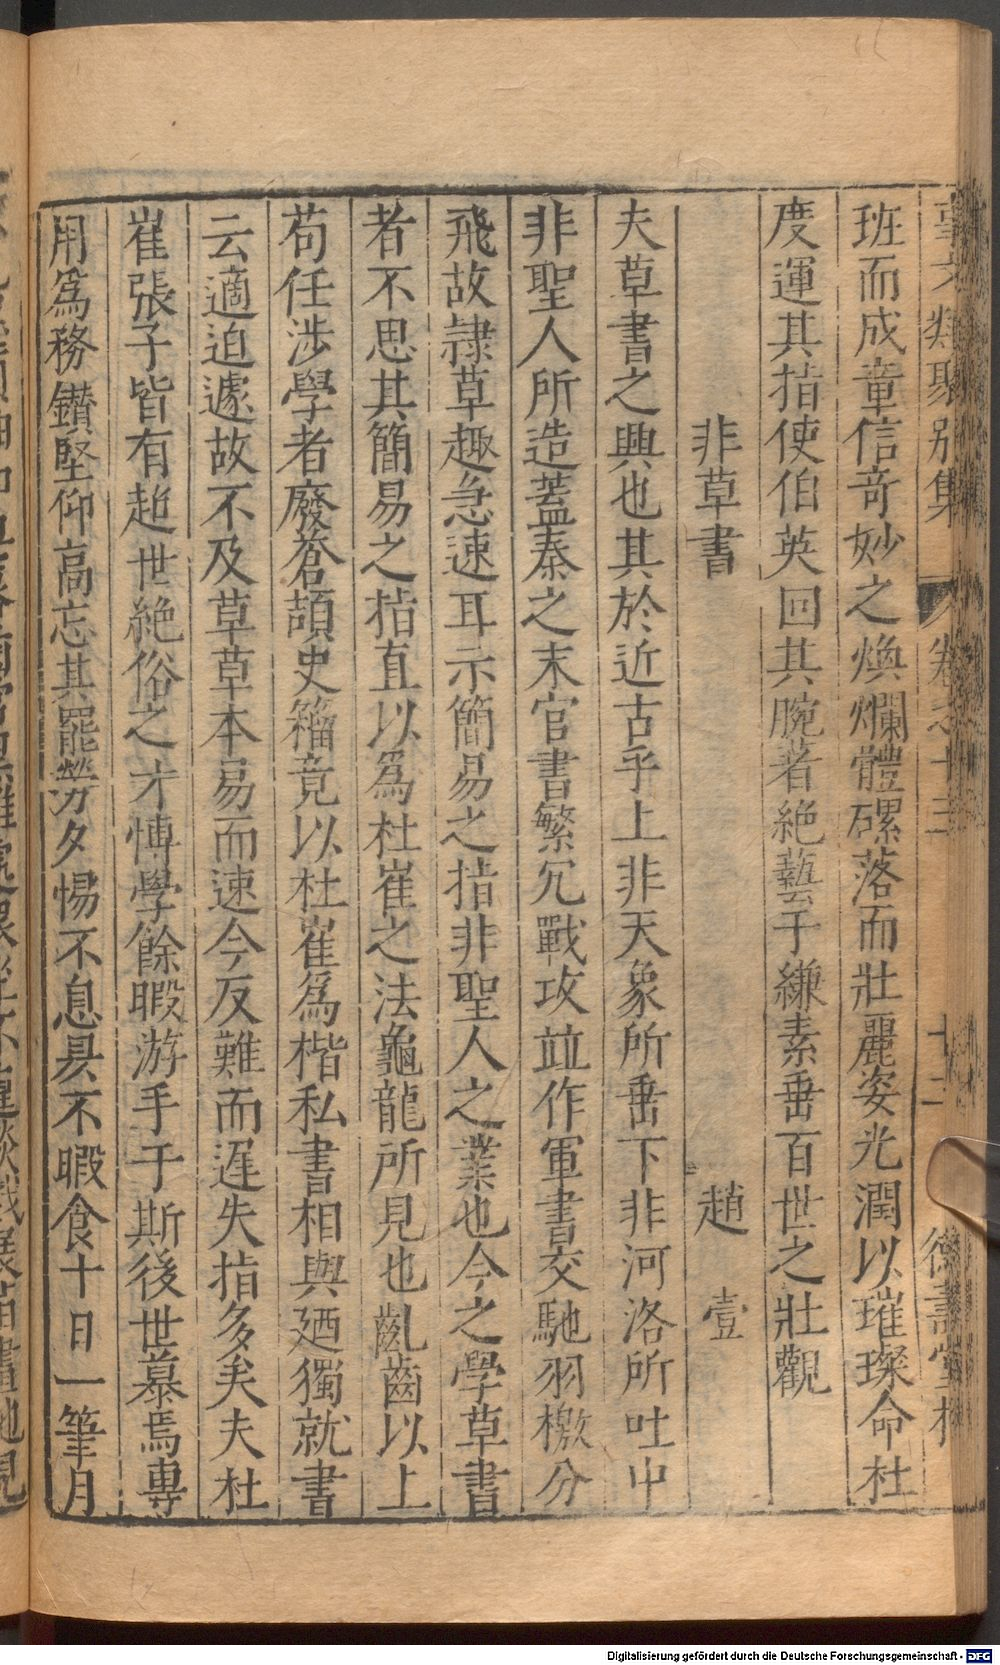 事文類聚別集 卷之十三 十二 德壽堂梓
班而成章信奇妙之煥爛體磥落而壯麗姿光潤以璀璨命杜
度運其指使伯英回其腕著絶藝于縑素垂百世之壯觀
非草書 趙壹
夫草書之興也其於近古乎上非天象所垂下非河洛所吐中
非聖人所造蓋秦之末官書繁冗戰攻並作軍書交馳羽檄分
飛故隷草趣急速耳示簡易之指非聖人之業也今之學草書
者不思其簡易之指直以爲杜崔之法龜龍所見也齓齒以上
苟任涉學者廢蒼頡史籀竟以杜崔爲楷私書相與廼獨就書
云適迫遽故不及草草本易而速今反難而遲失指多矣夫杜
崔張子皆有超世絶俗之才愽學餘暇游手于斯後世慕焉專
用爲務鑚堅仰高忘其罷勞夕惕不息昃不暇食十日一筆月
Digitalisierung gefördert durch die Deutsche Forschungsgemeinschaft - DFG